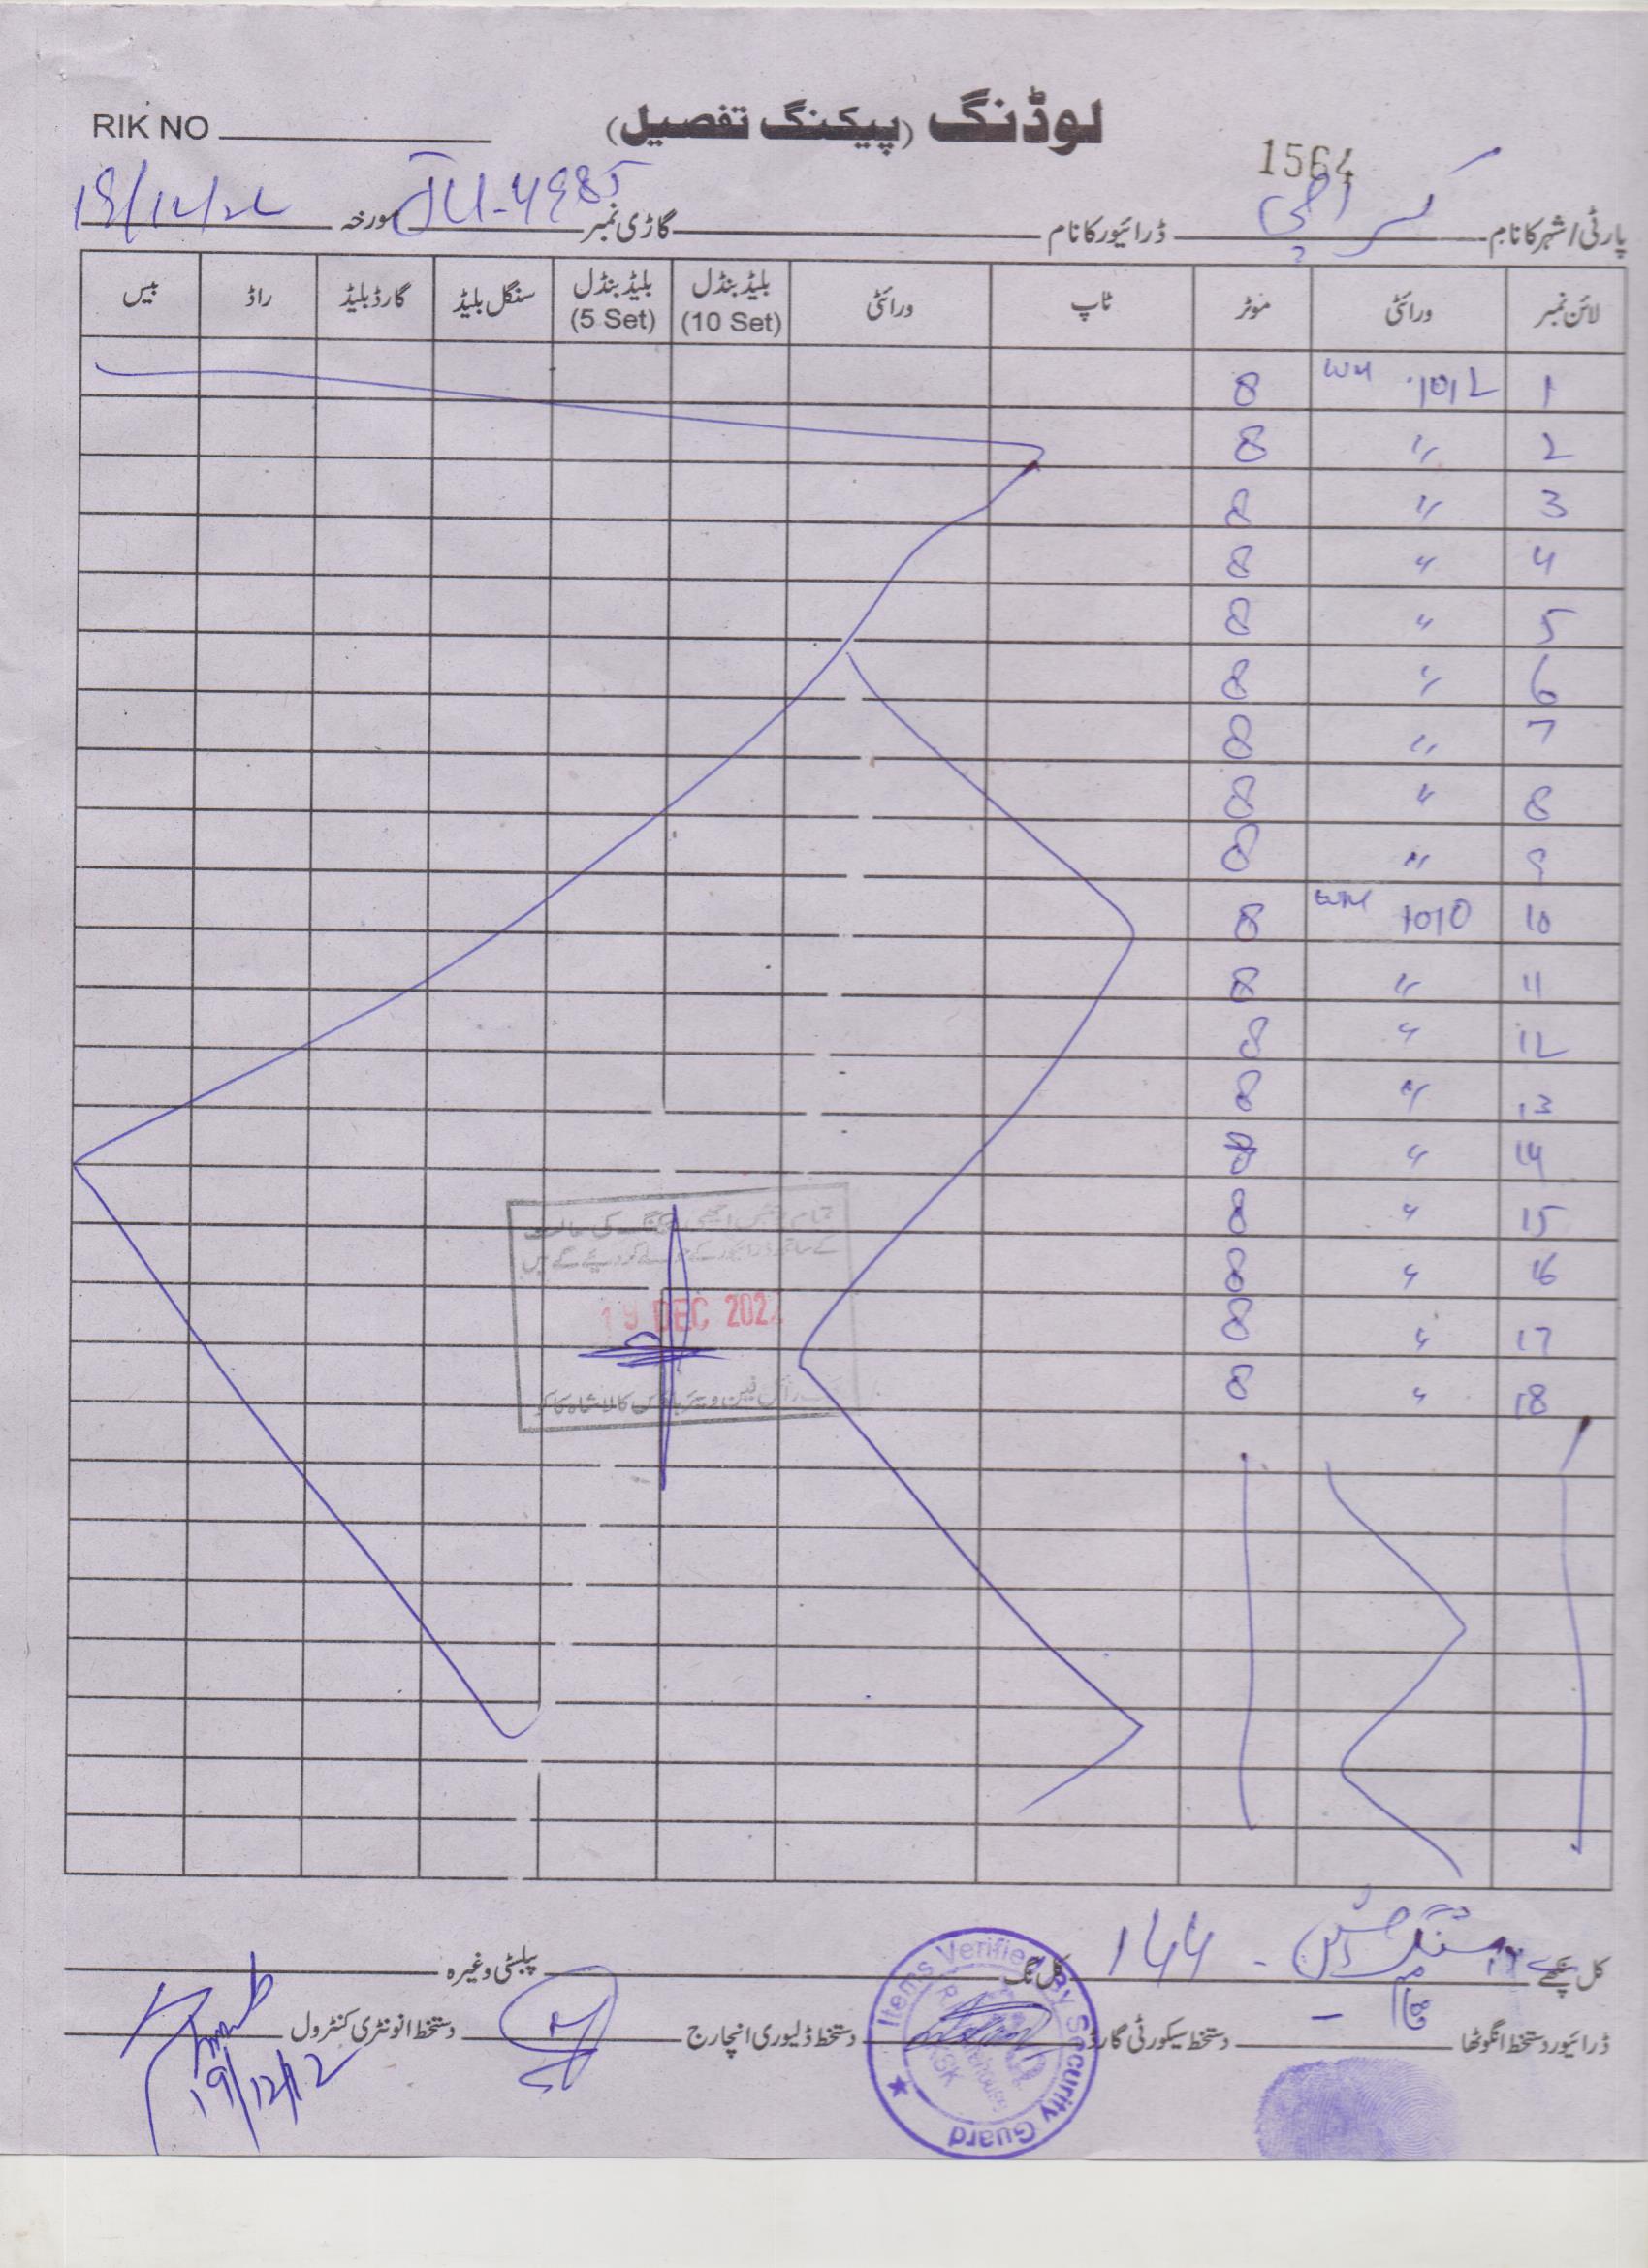 RIK NO
لوڈنگ (پیکنگ تفصیل)
1564
پارٹی/شہر کا نام کراچی ڈرائیور کا نام گاڑی نمبر JU-4985 مورخہ 19/12/22
لائن نمبر ورائٹی موٹر ٹاپ ورائٹی بلیڈ بنڈل (10 Set) بلیڈ بنڈل (5 Set) سنگل بلیڈ گارڈ بلیڈ راڈ بیس
1 WM 1012 8
2 〃 8
3 〃 8
4 〃 8
5 〃 8
6 〃 8
7 〃 8
8 〃 8
9 〃 8
10 WM 1010 8
11 〃 8
12 〃 8
13 〃 8
14 〃 8
15 〃 8
16 〃 8
17 〃 8
18 〃 8
19 DEC 2022
کل پنکھے 144 کل نگ پبلسٹی وغیرہ
ڈرائیور دستخط انگوٹھا دستخط سیکورٹی گارڈ دستخط ڈلیوری انچارج دستخط انونٹری کنٹرول
Items Verified By Security Guard
19/12/12